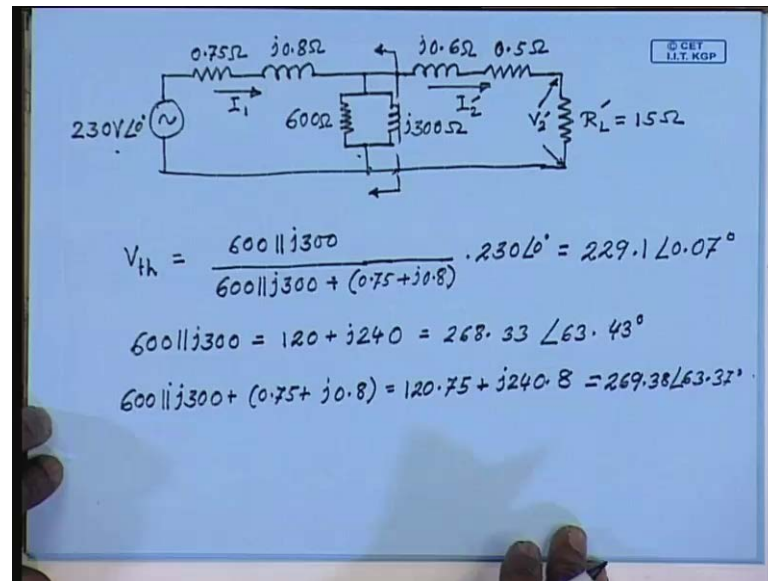 0.75Ω j0.8Ω j0.6Ω 0.5Ω
© CET
I.I.T. KGP
I₁ I₂′
230V∠0° 600Ω j300Ω V₂′ R_L′ = 15Ω
V_th = 600||j300 / 600||j300 + (0.75+j0.8) . 230∠0° = 229.1∠0.07°
600||j300 = 120 + j240 = 268.33 ∠63.43°
600||j300 + (0.75 + j0.8) = 120.75 + j240.8 = 269.38∠63.37°